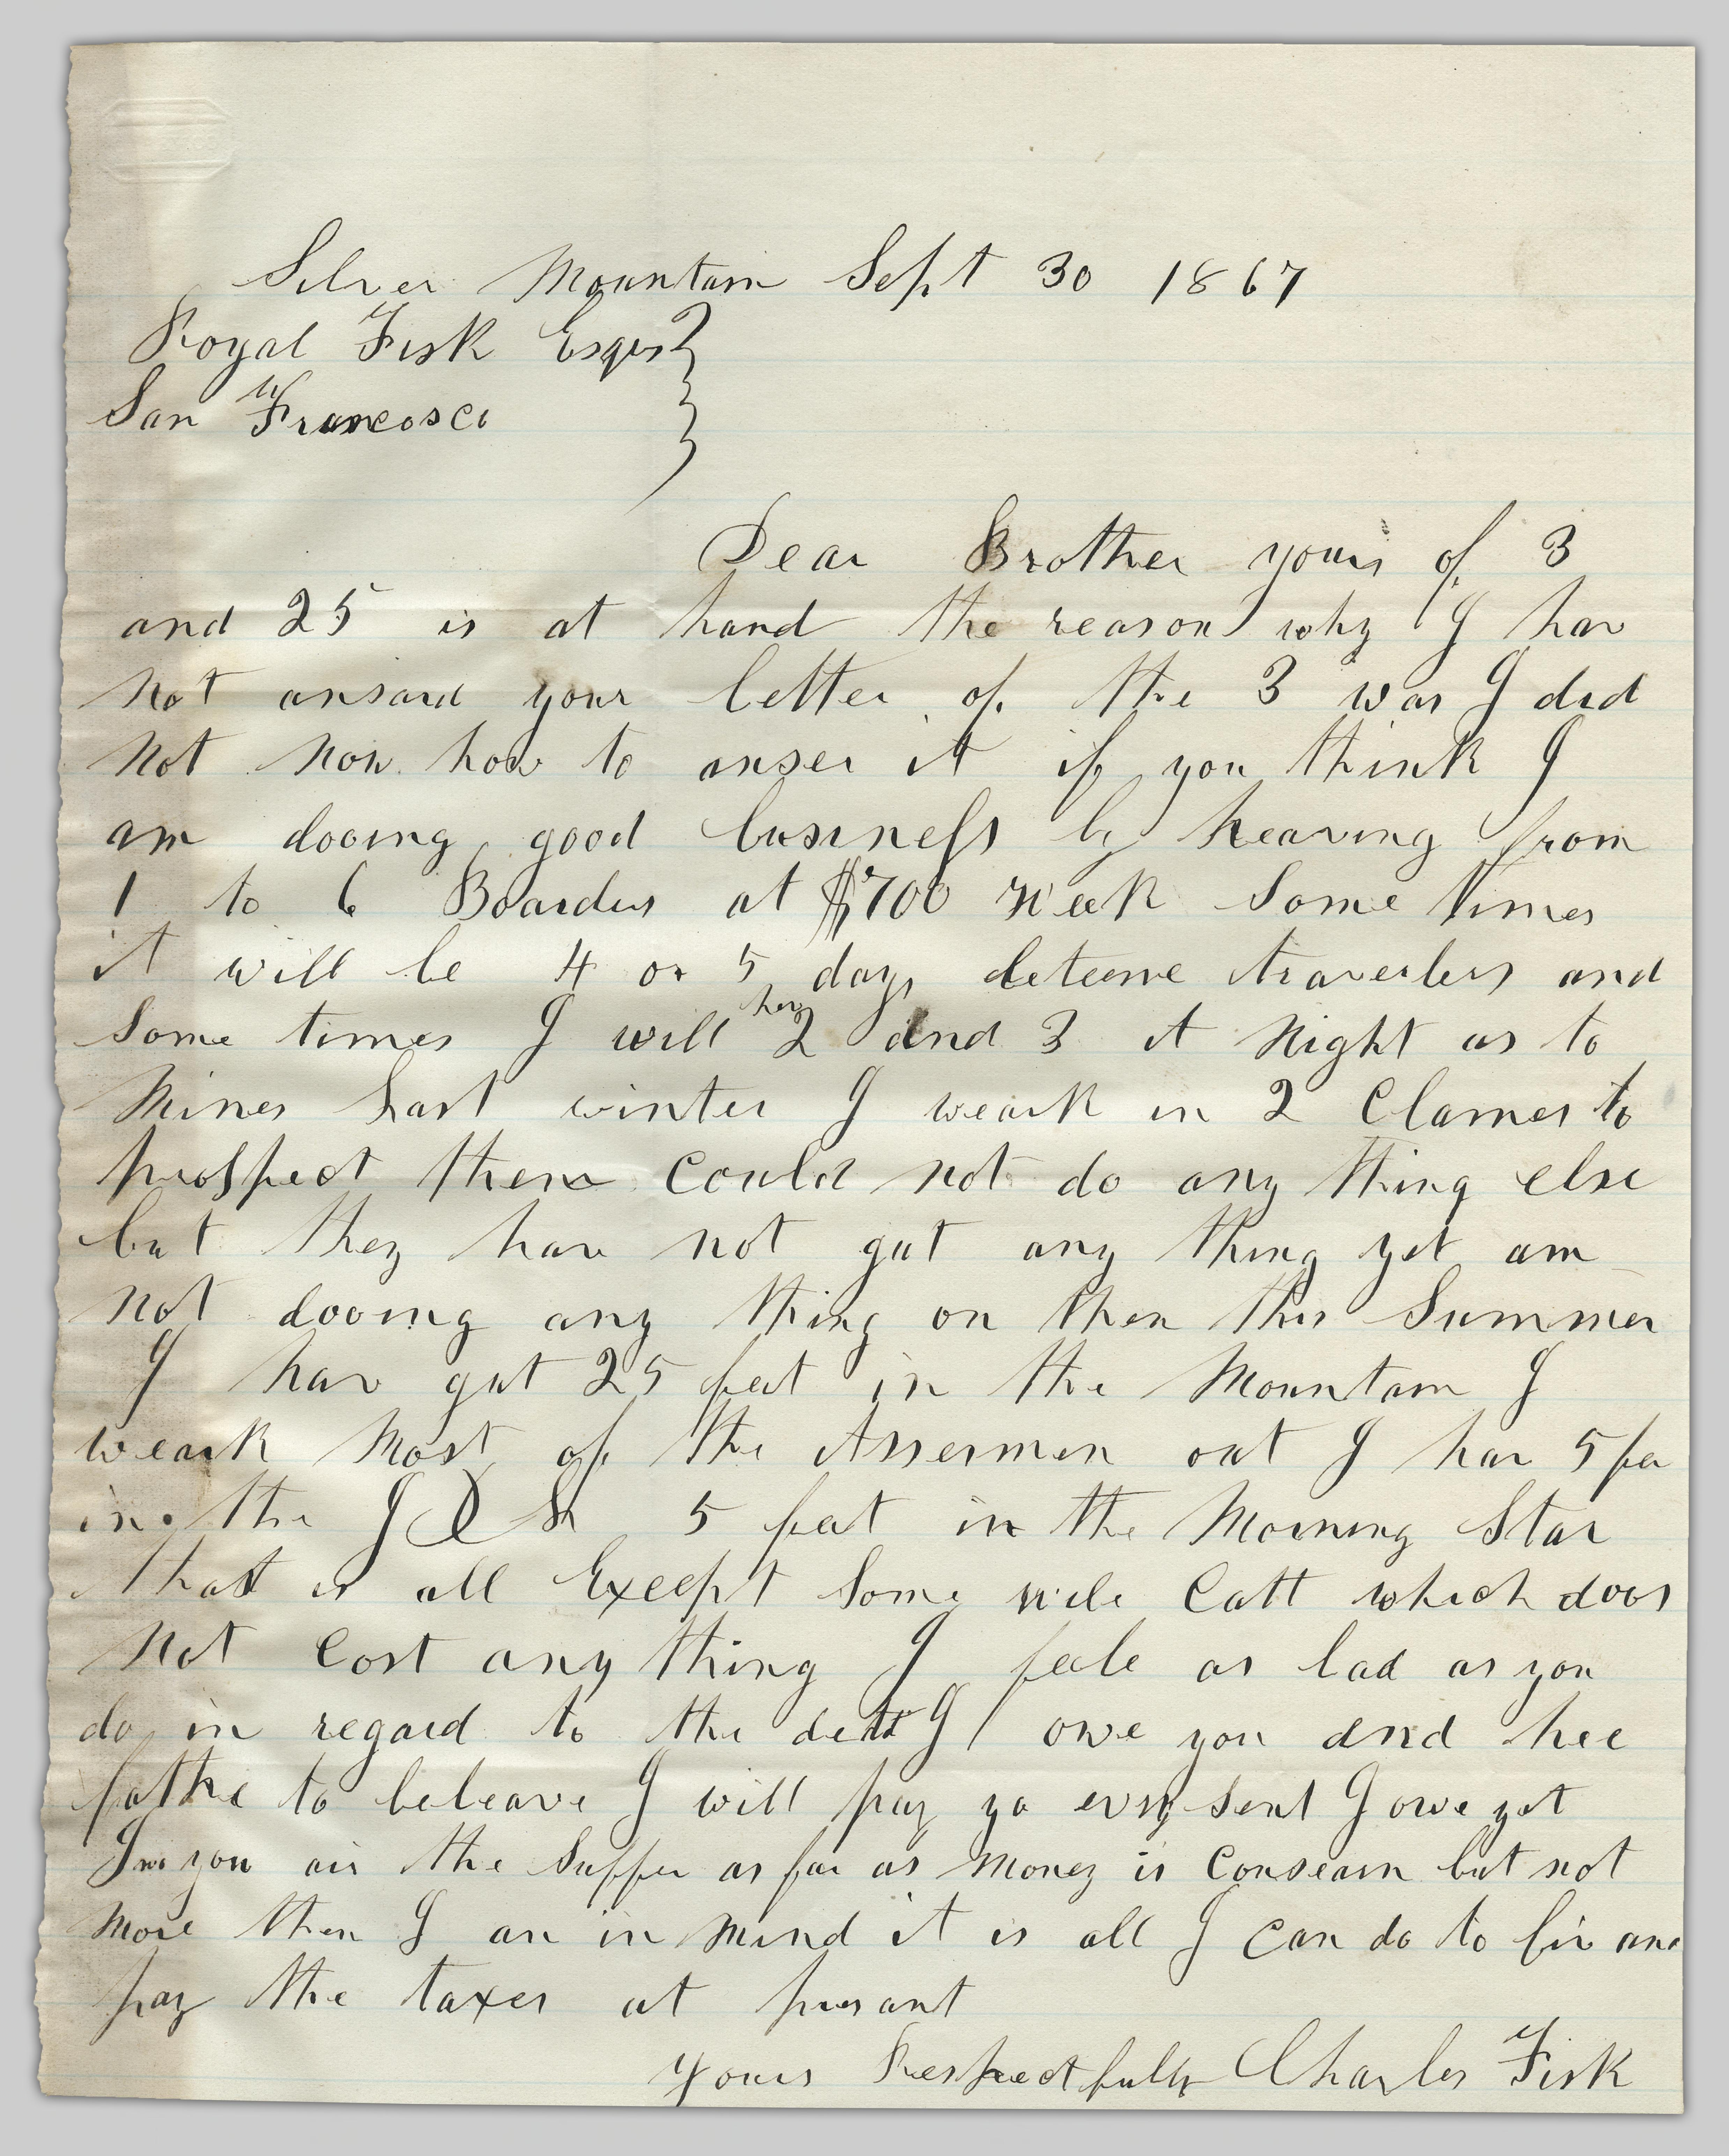 Silver Mountain Sept 30 1867
Royal Fisk Esqr
San Francosco
Dear Brother yours of 3
and 25 is at hand the reason why I hav
not ansard your letter of the 3 was I did
not now how to anser it if you think I
am dooing good business by heaving from
1 to 6 Boarders at $700 week some times
it will be 4 or 5 days beteene traverlers and
some times I will hav 2 and 3 at Night as to
Mines Last winter I weark in 2 Clames to
prospect them could not do any thing else
but they hav not gut any thing yet am
not dooing any thing on them this Summer
I hav gut 25 feet in the Mountain I
weark Most of the Assermen out I hav 5 fee
in the I X L 5 feet in the Morning Star
that is all Except some wile Catt which doos
not Cost any thing I feele as bad as you
do in regard to the dett I owe you and hee
fathe to beleave I will pay yo evry sent I owe yet
I no you air the suffer as far as money is consearn but not
more then I an in mind it is all I can do to liv and
pay the taxes at presant
yours Respectfully Charles Fisk